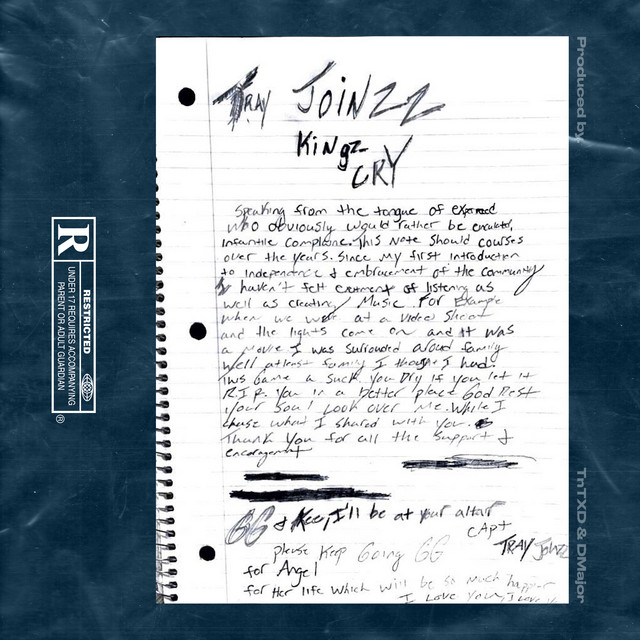 TRAY JOiNZZ
KiNgz
CRY
Speaking from the tongue of
who obviously would rather be
infantile This Note Should courses
over the years. Since my first introduction
to independence & embracement of the community
haven't felt of listening as
well as creating Music. For Example
when we were at a video Shoot
and the lights come on and it was
a Movie I was
well atleast family I I had.
This Game a Suck You Dry if You let it
R.I.P. You in a better place God Rest
Your Soul Look over Me. While I
what I shared with You.
Thank You for all the Support &
GG & Keep, I'll be at your altar
CAPT
TRAY JOINZZ
please Keep Going GG
for Angel
for Her life Which will be so much happier
I Love You, I Love
R
RESTRICTED
UNDER 17 REQUIRES ACCOMPANYING
PARENT OR ADULT GUARDIAN
®
Produced by
TnTXD & DMajor